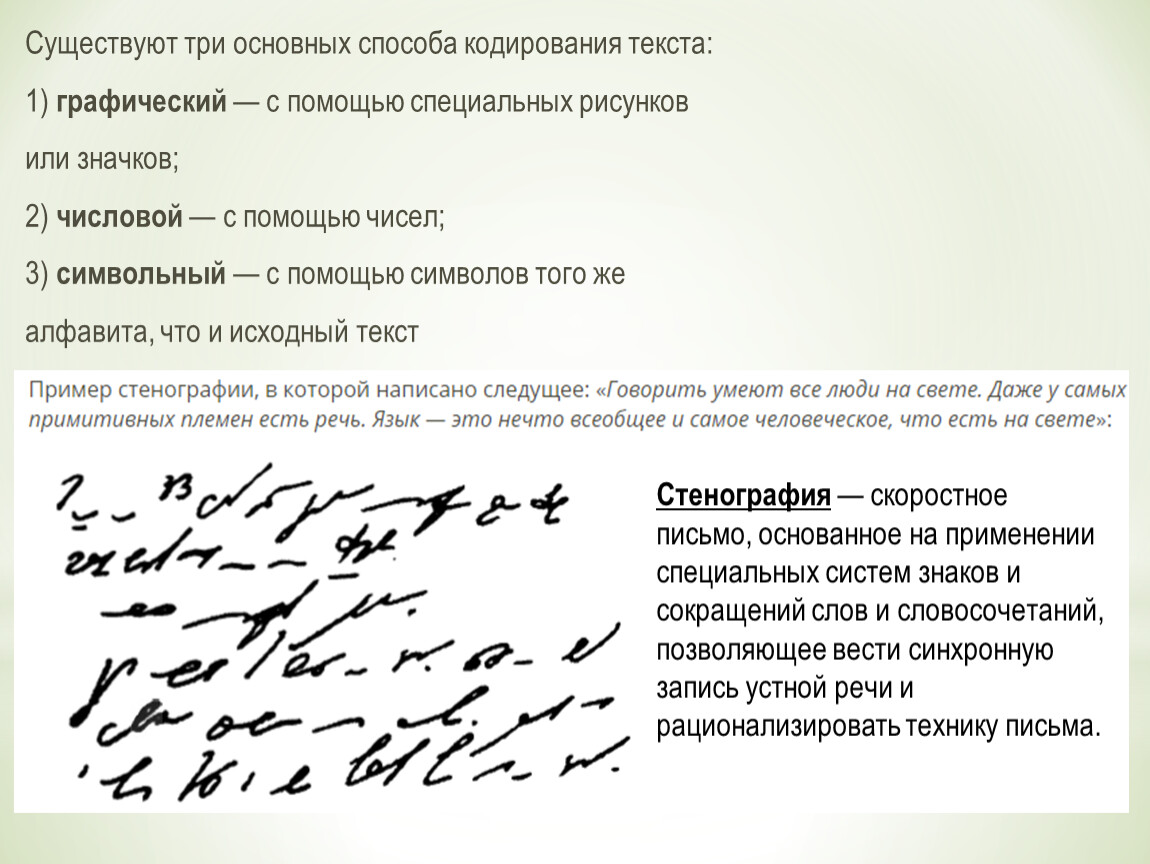 Существуют три основных способа кодирования текста:
1) графический — с помощью специальных рисунков
или значков;
2) числовой — с помощью чисел;
3) символьный — с помощью символов того же
алфавита, что и исходный текст
Пример стенографии, в которой написано следующее: «Говорить умеют все люди на свете. Даже у самых
примитивных племен есть речь. Язык — это нечто всеобщее и самое человеческое, что есть на свете»:
Стенография — скоростное
письмо, основанное на применении
специальных систем знаков и
сокращений слов и словосочетаний,
позволяющее вести синхронную
запись устной речи и
рационализировать технику письма.